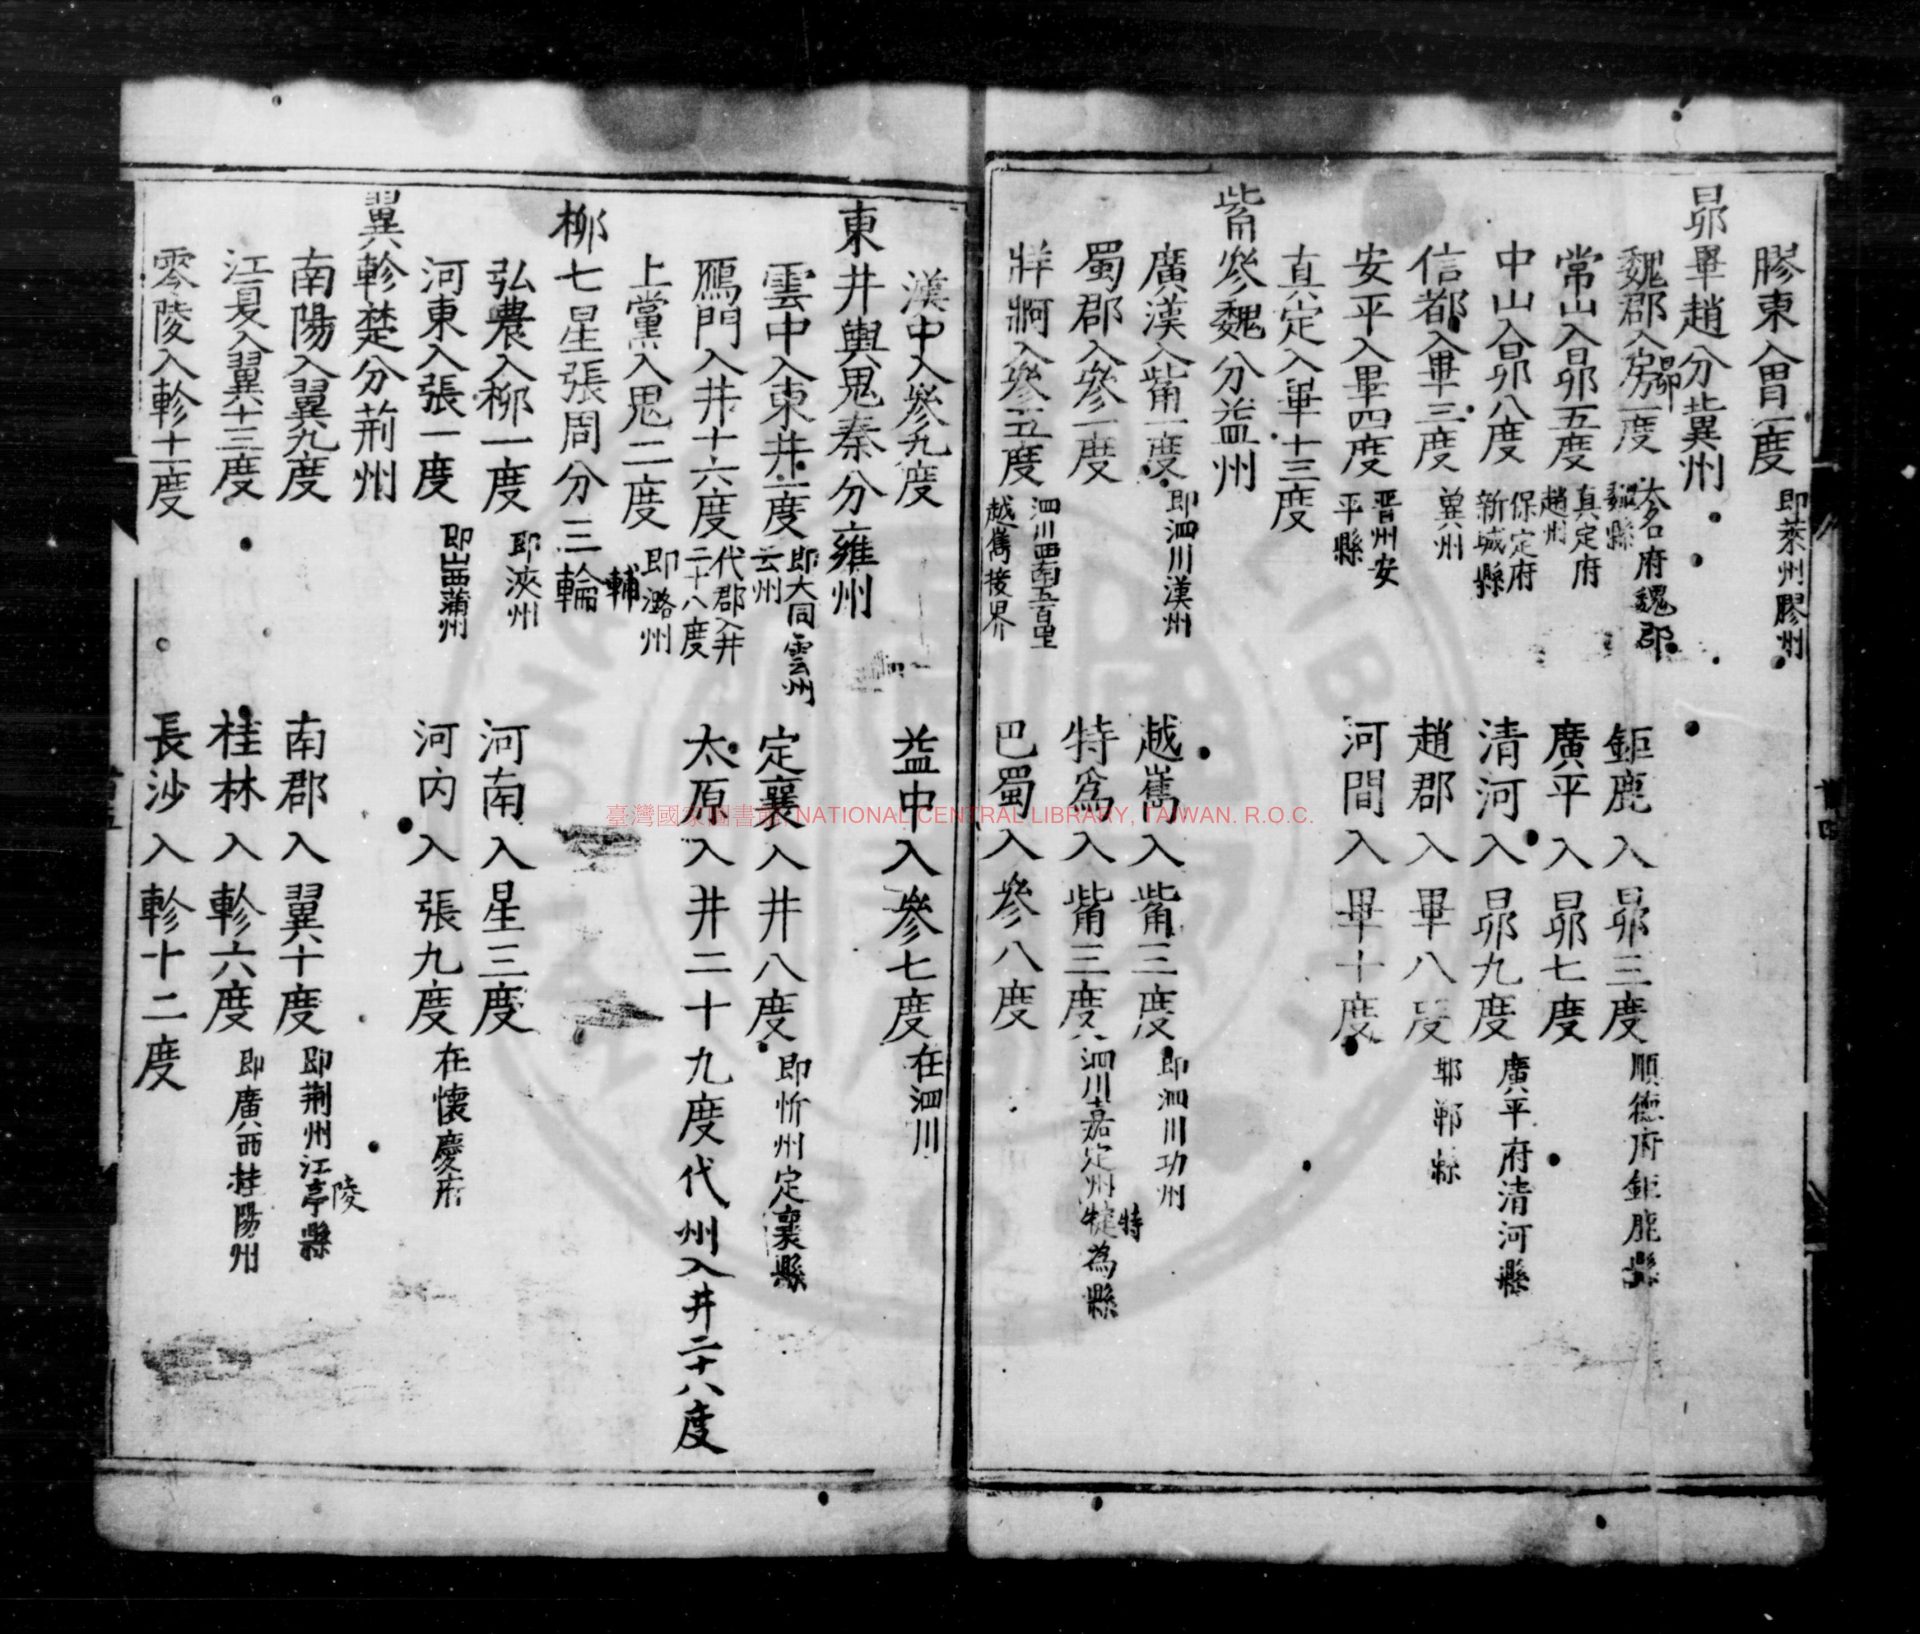 膠東入胃一度 即萊州膠州
昴畢趙分冀州
魏郡入房一度 昴 大名府魏郡魏縣 鉅鹿入昴三度 順德府鉅鹿縣
常山入昴五度 真定府趙州 廣平入昴七度
中山入昴八度 保定府新城縣 清河入昴九度 廣平府清河縣
信都入畢三度 冀州 趙郡入畢八度 邯鄲縣
安平入畢四度 晋州安平縣 河間入畢十度
真定入畢十三度
觜參魏分益州
廣漢入觜一度 即泗川漢州 越嶲入觜三度 即泗川功州
蜀郡入參一度 特為入觜三度 泗川嘉定州犍為縣 特
牂牁入參五度 泗川西南五百里越嶲接界 巴蜀入參八度
漢中入參九度 益中入參七度 在泗川
東井輿鬼秦分雍州
雲中入東井一度 即大同雲州云州 定襄入井八度 即忻州定襄縣
鴈門入井十六度 代郡入井二十八度 太原入井二十九度代州入井二十八度
上黨入鬼二度 即潞州
柳七星張周分三輪 輔
弘農入柳一度 即浹州 河南入星三度
河東入張一度 即山西蒲州 河內入張九度 在懷慶府
翼軫楚分荊州
南陽入翼九度 南郡入翼十度 即荊州江亭縣 陵
江夏入翼十三度 桂林入軫六度 即廣西桂陽州
零陵入軫十一度 長沙入軫十二度
臺灣國家圖書館 NATIONAL CENTRAL LIBRARY, TAIWAN. R.O.C.